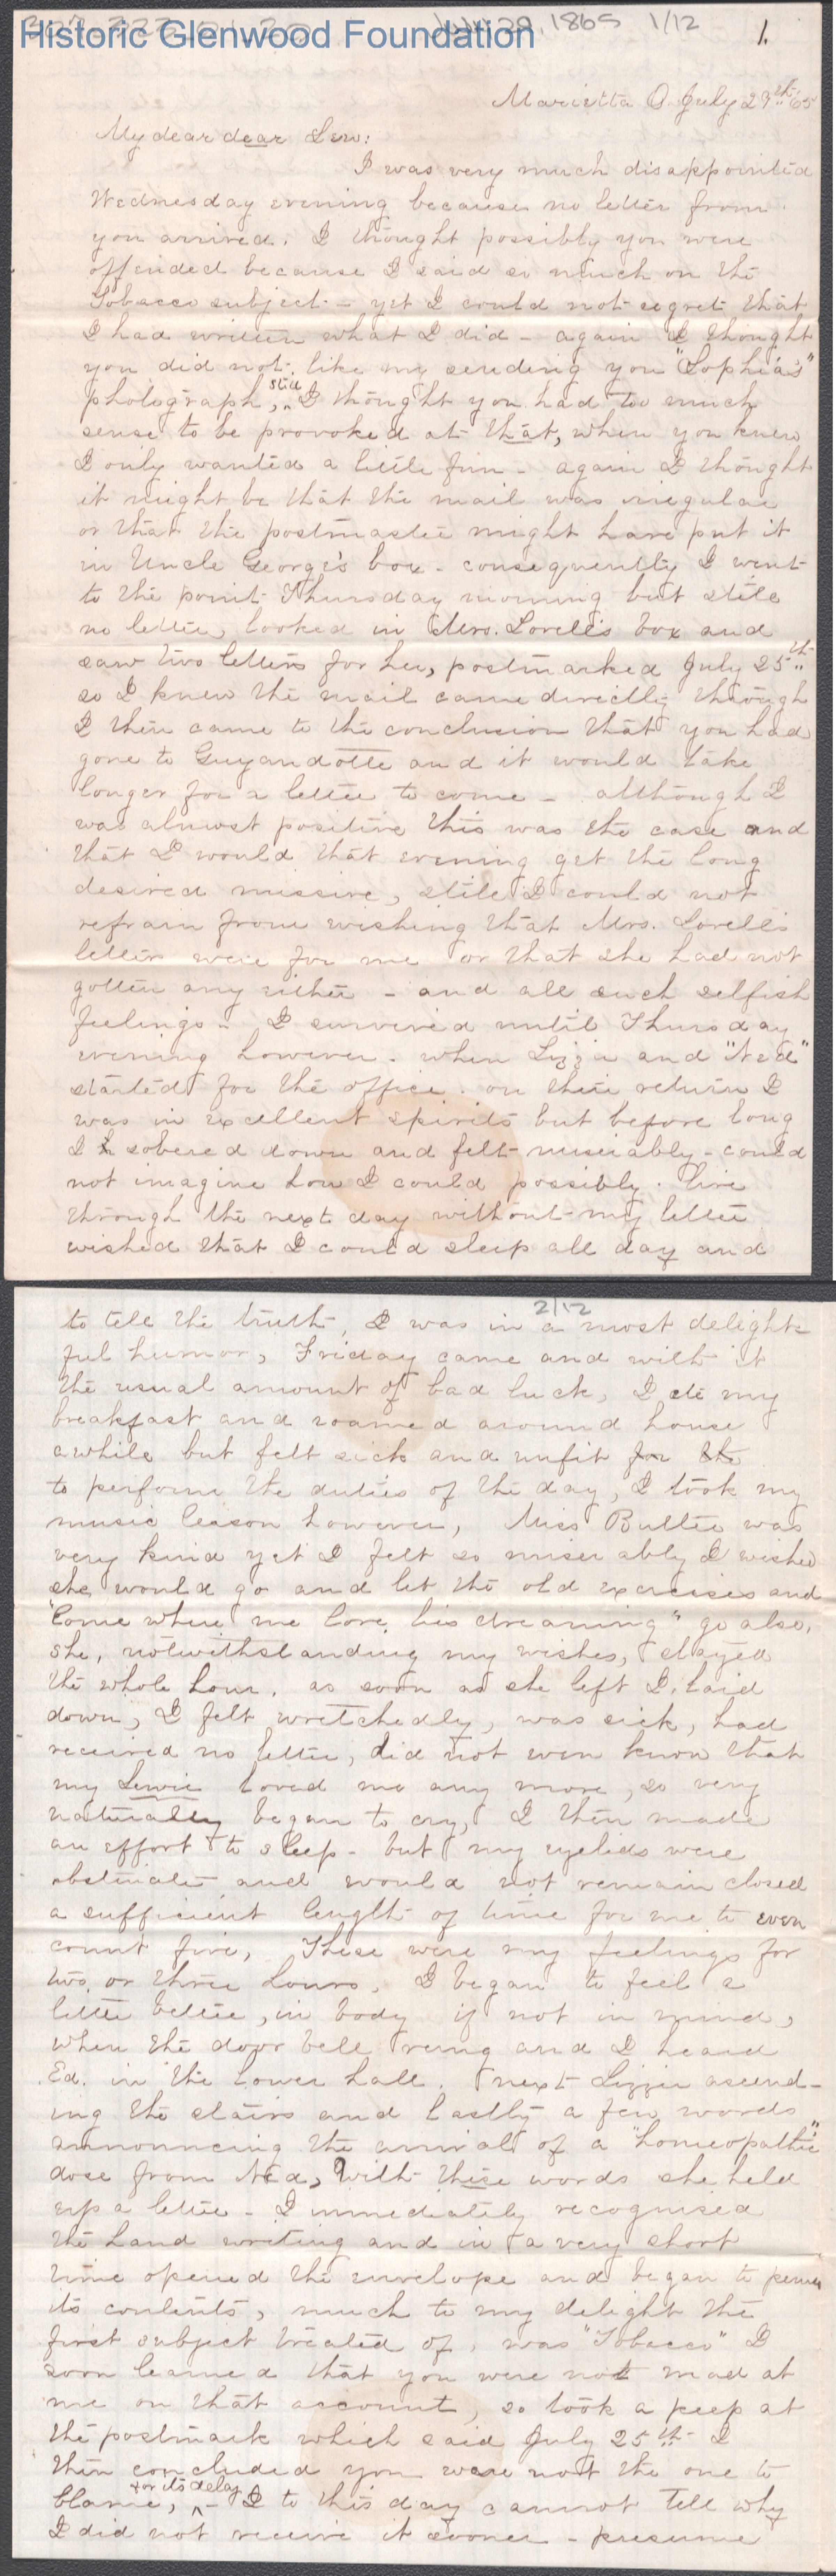 Historic Glenwood Foundation
July 29, 1865 1/12
1.
Marietta O July 29th '65
My dear dear Lew:
I was very much disappointed
Wednesday evening because no letter from
you arrived. I thought possibly you were
offended because I said so much on the
Tobacco subject - yet I could not regret that
I had written what I did - again I thought
you did not like my sending you "Sophia's"
photograph, still I thought you had too much
sense to be provoked at that, when you knew
I only wanted a little fun - again I thought
it might be that the mail was irregular
or that the postmaster might have put it
in Uncle George's box - consequently I went
to the point Thursday morning but still
no letter, looked in Mrs. Lovell's box and
saw two letters for her, postmarked July 25th
so I knew the mail came directly through
I then came to the conclusion that you had
gone to Guyandotte and it would take
longer for a letter to come - although I
was almost positive this was the case and
that I would that evening get the long
desired missive, still I could not
refrain from wishing that Mrs. Lovell's
letters were for me or that she had not
gotten any either - and all such selfish
feelings - I survived until Thursday
evening however - when Lizzie and "Ned"
started for the office. on their return I
was in excellent spirits but before long
I sobered down and felt miserably - could
not imagine how I could possibly live
through the next day without my letter
wished that I could sleep all day and
2/12
to tell the truth, I was in a most delight
ful humor, Friday came and with it
the usual amount of bad luck, I ate my
breakfast and roamed around house
awhile but felt sick and unfit for the
to perform the duties of the day, I took my
music lesson however, Miss Butter was
very kind yet I felt so miserably I wished
she would go and let the old exercises and
"Come where me love lies dreaming" go also,
she, notwithstanding my wishes, stayed
the whole hour. as soon as she left I laid
down, I felt wretchedly, was sick, had
received no letter, did not even know that
my Lewie loved me any more, so very
naturally began to cry, I then made
an effort to sleep - but my eyelids were
obstinate and would not remain closed
a sufficient length of time for me to even
count five, These were my feelings for
two or three hours. I began to feel a
little better, in body if not in mind,
when the door bell rung and I heard
Ed. in the lower hall. next Lizzie ascend-
ing the stairs and lastly a few words
announcing the arrival of a "homeopathic"
dose from Ned, With these words she held
up a letter - I immediately recognised
the hand writing and in a very short
time opened the envelope and began to peruse
its contents, much to my delight the
first subject treated of, was "Tobacco" I
soon learned that you were not mad at
me on that account, so took a peep at
the postmark which said July 25th I
then concluded you were not the one to
blame, for its delay - I to this day cannot tell why
I did not receive it sooner - presume